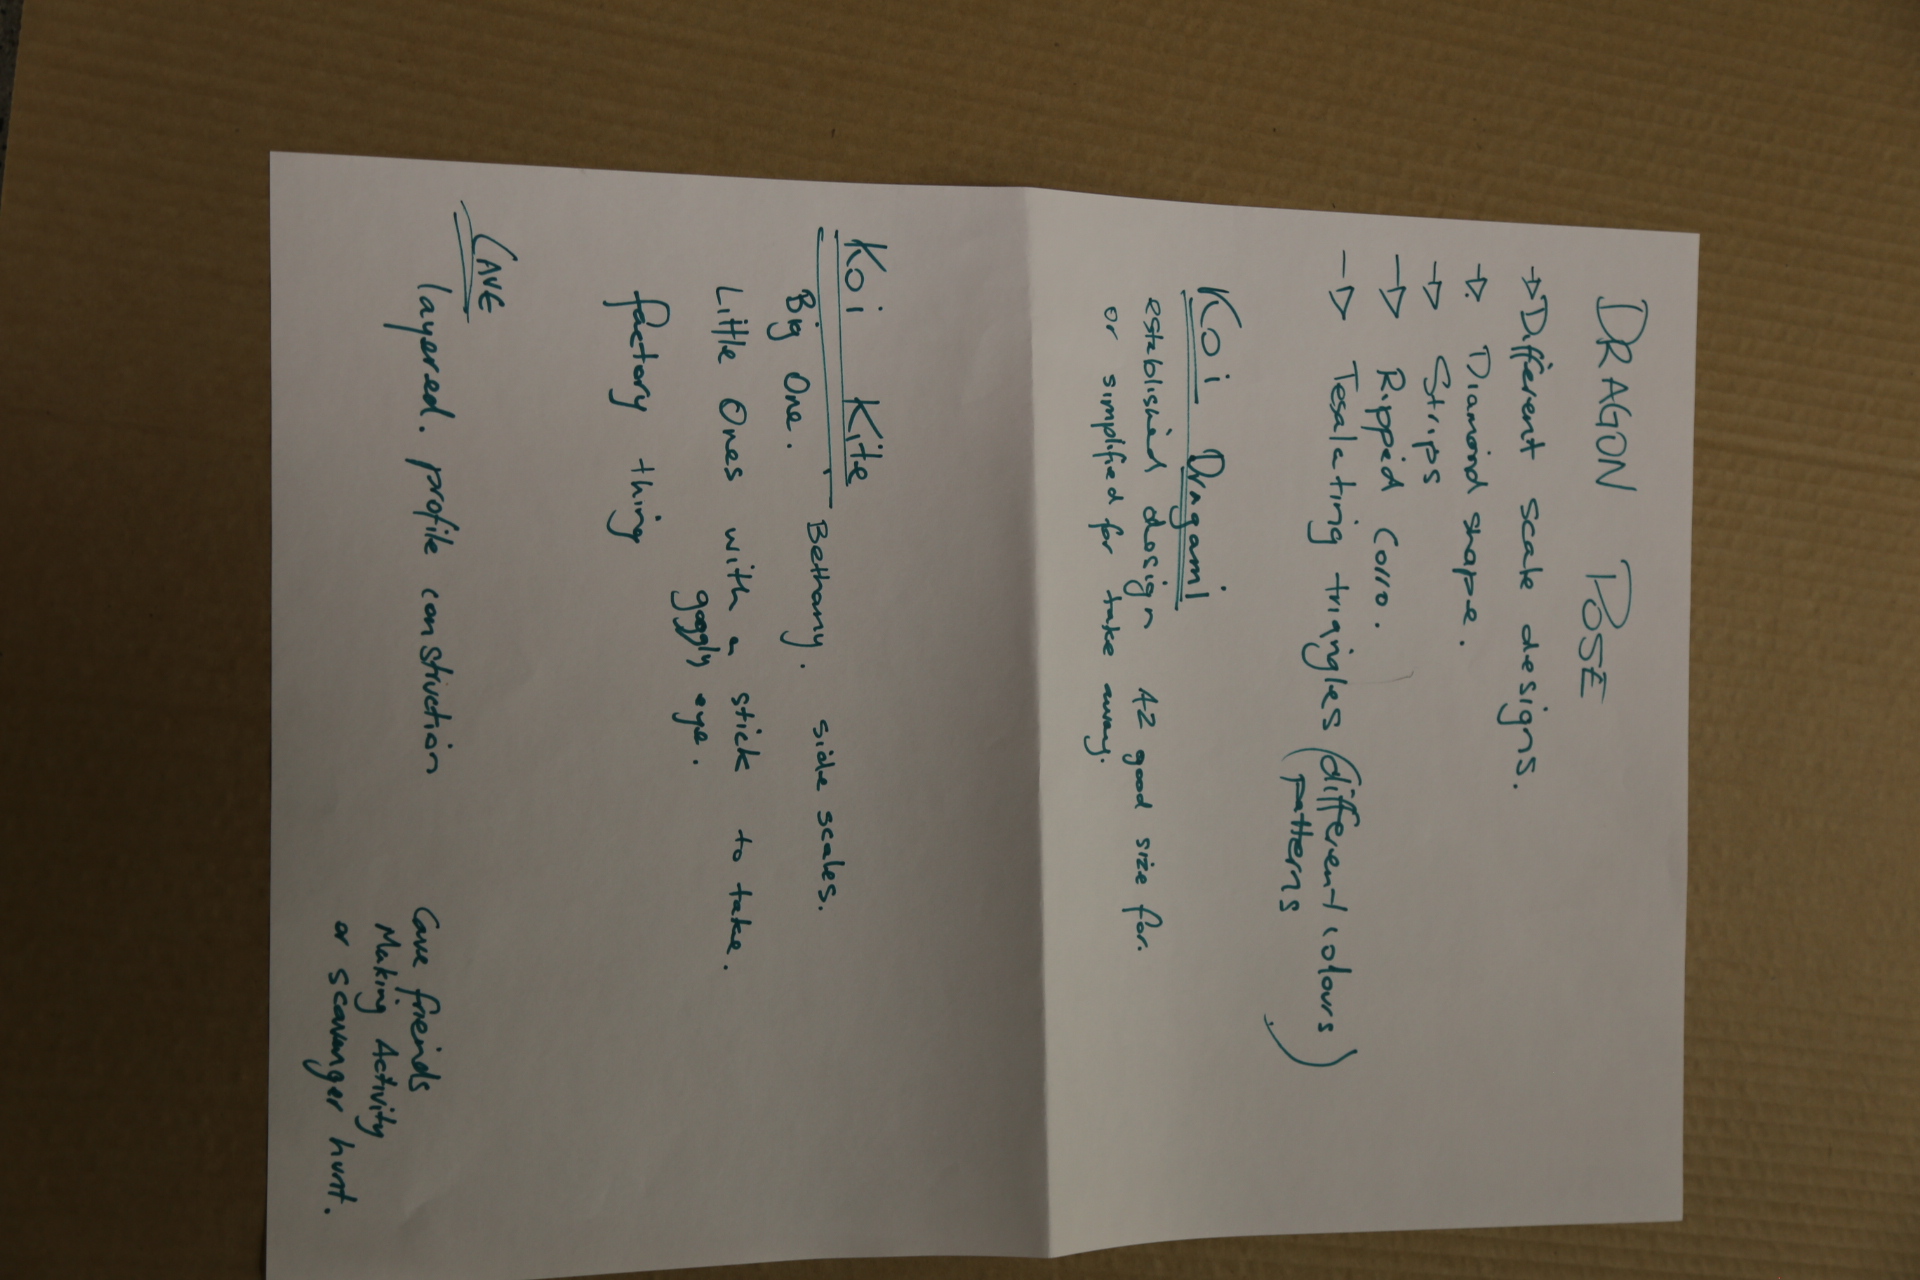 DRAGON POSE
→ Different scale designs.
→ Diamond shape.
→ Strips
→ Ripped Corro.
→ Tesalating triangles (different colours
patterns)
Koi Oragami
established design A2 good size for.
or simplified for take away.
Koi Kite
Bethany. side scales.
Big One.
Little Ones with a stick to take.
googly eye.
factory thing
CAVE
layered. profile construction
Cave friends
Making Activity
or scavenger hunt.